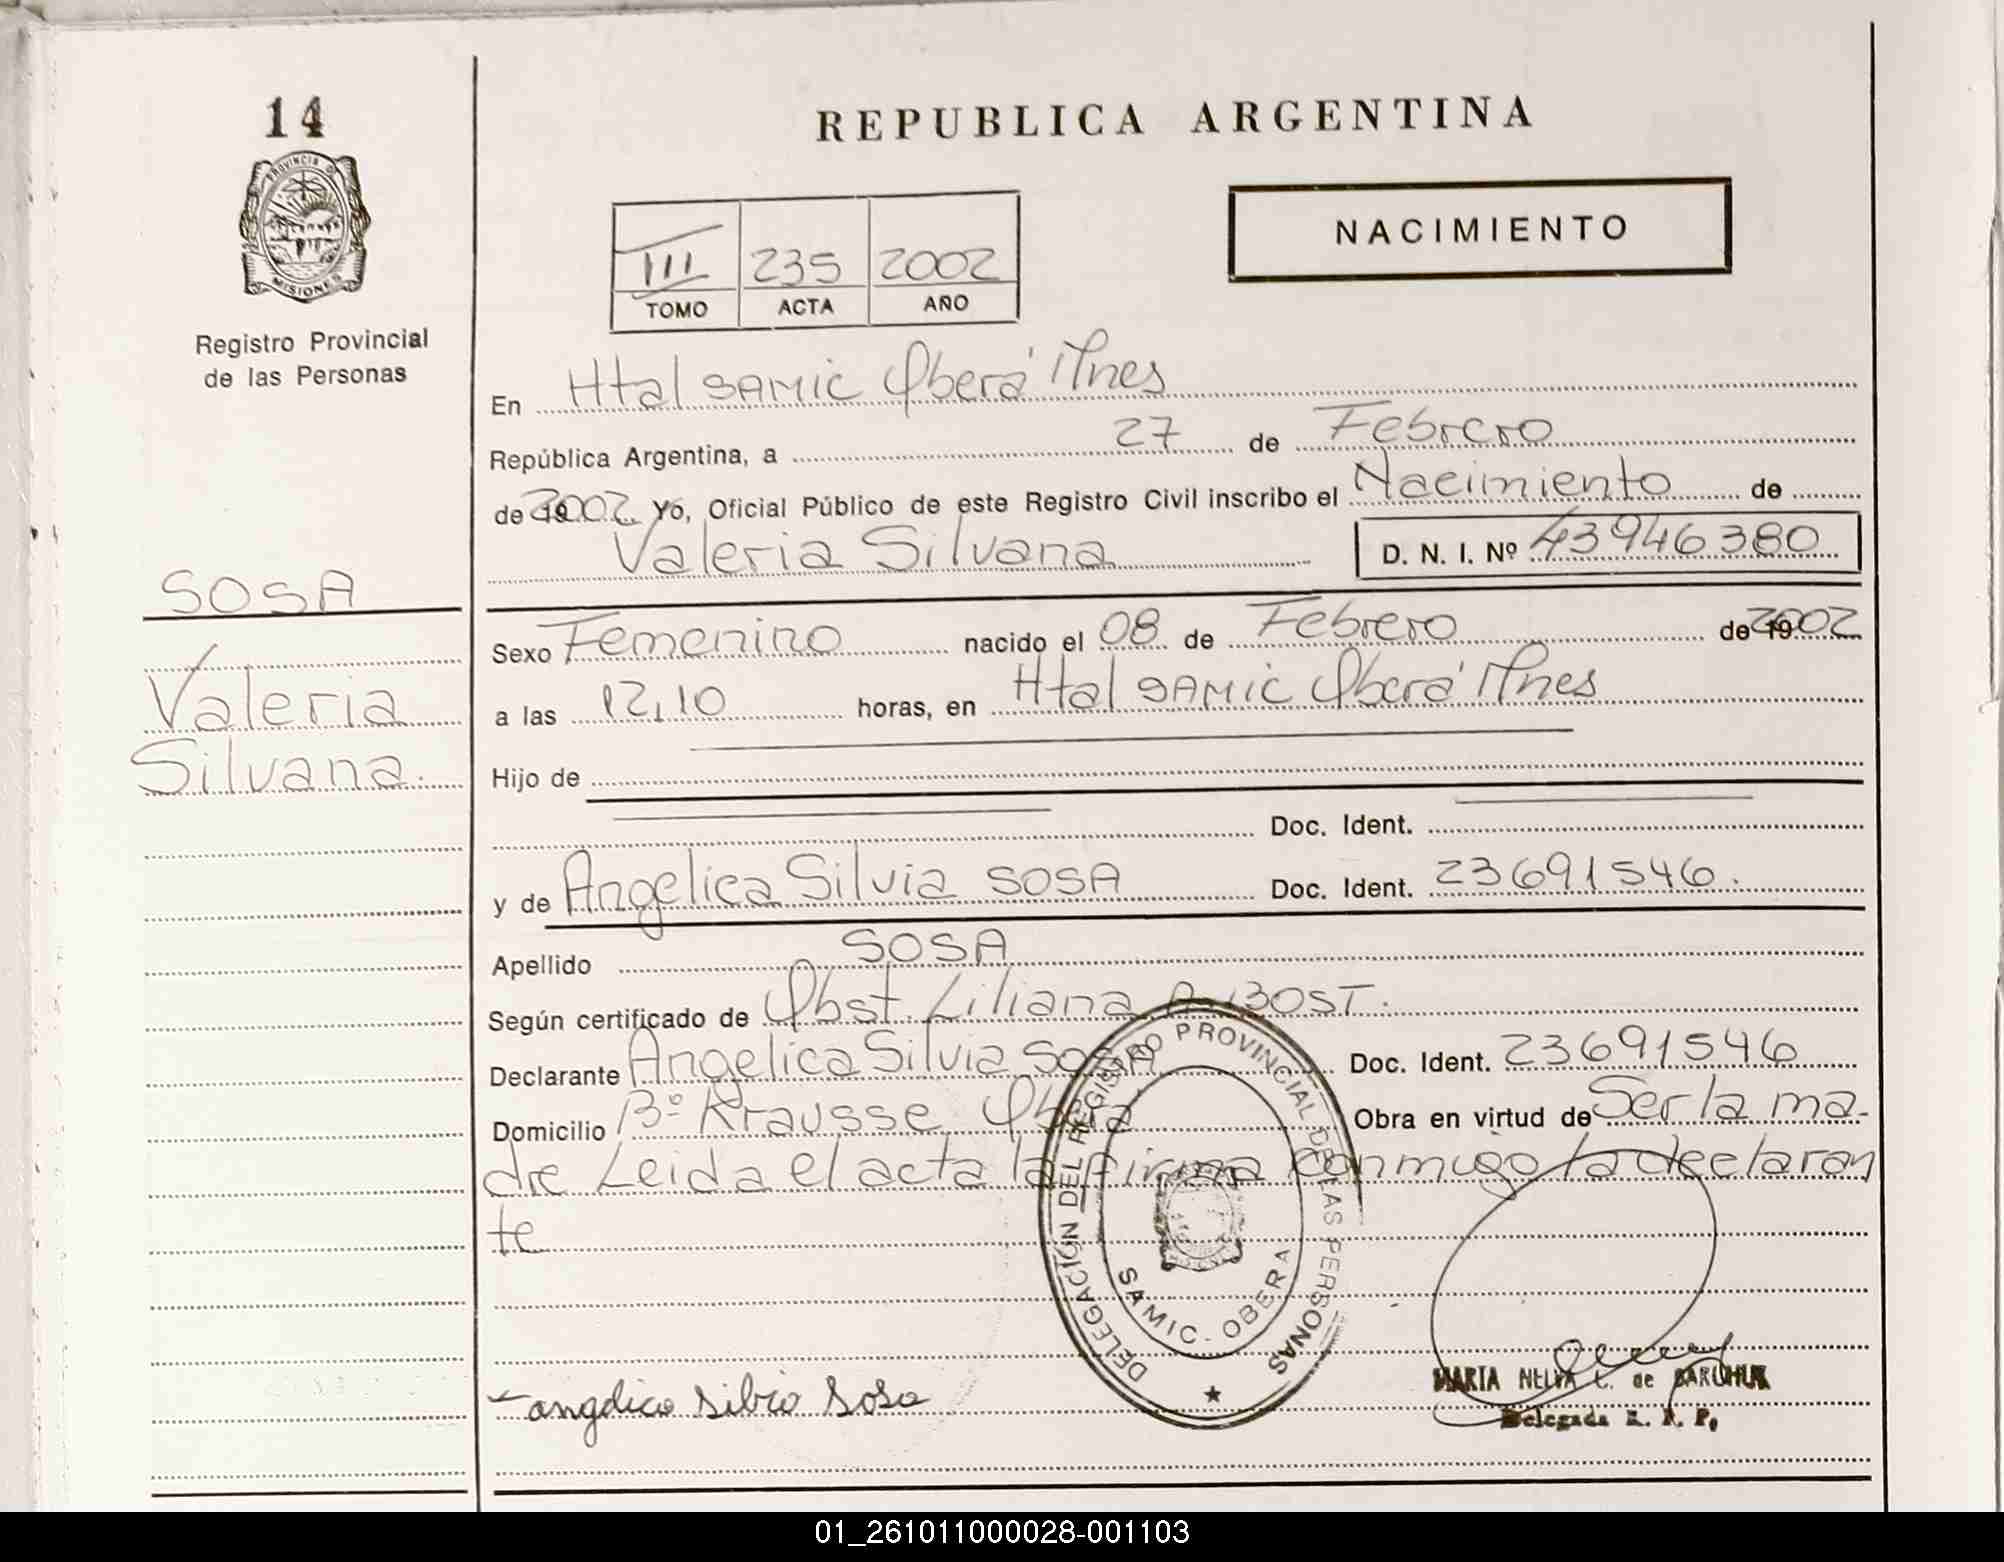 14
PROVINCIA DE
MISIONES
Registro Provincial
de las Personas
SOSA
Valeria
Silvana.
REPUBLICA ARGENTINA
NACIMIENTO
III 235 2002
TOMO ACTA AÑO
En Htal SAMIC Oberá Mnes
República Argentina, a 27 de Febrero
de 2002 Yo, Oficial Público de este Registro Civil inscribo el Nacimiento de
Valeria Silvana D. N. I. Nº 43946380
Sexo Femenino nacido el 08 de Febrero de 2002
a las 12,10 horas, en Htal SAMIC Oberá Mnes
Hijo de
Doc. Ident.
y de Angelica Silvia SOSA Doc. Ident. 23691546.
Apellido SOSA
Según certificado de Obst. Liliana A. BOST.
Declarante Angelica Silvia SOSA Doc. Ident. 23691546
Domicilio Bº Krausse Oberá Obra en virtud de Ser la ma-
dre Leida el acta la firma conmigo la declaran
te
DELEGACIÓN DEL REGISTRO PROVINCIAL DE LAS PERSONAS
SAMIC - OBERA
angelica silvia sosa
MARIA NELVA C. de
Delegada R. P. P.
01_261011000028-001103